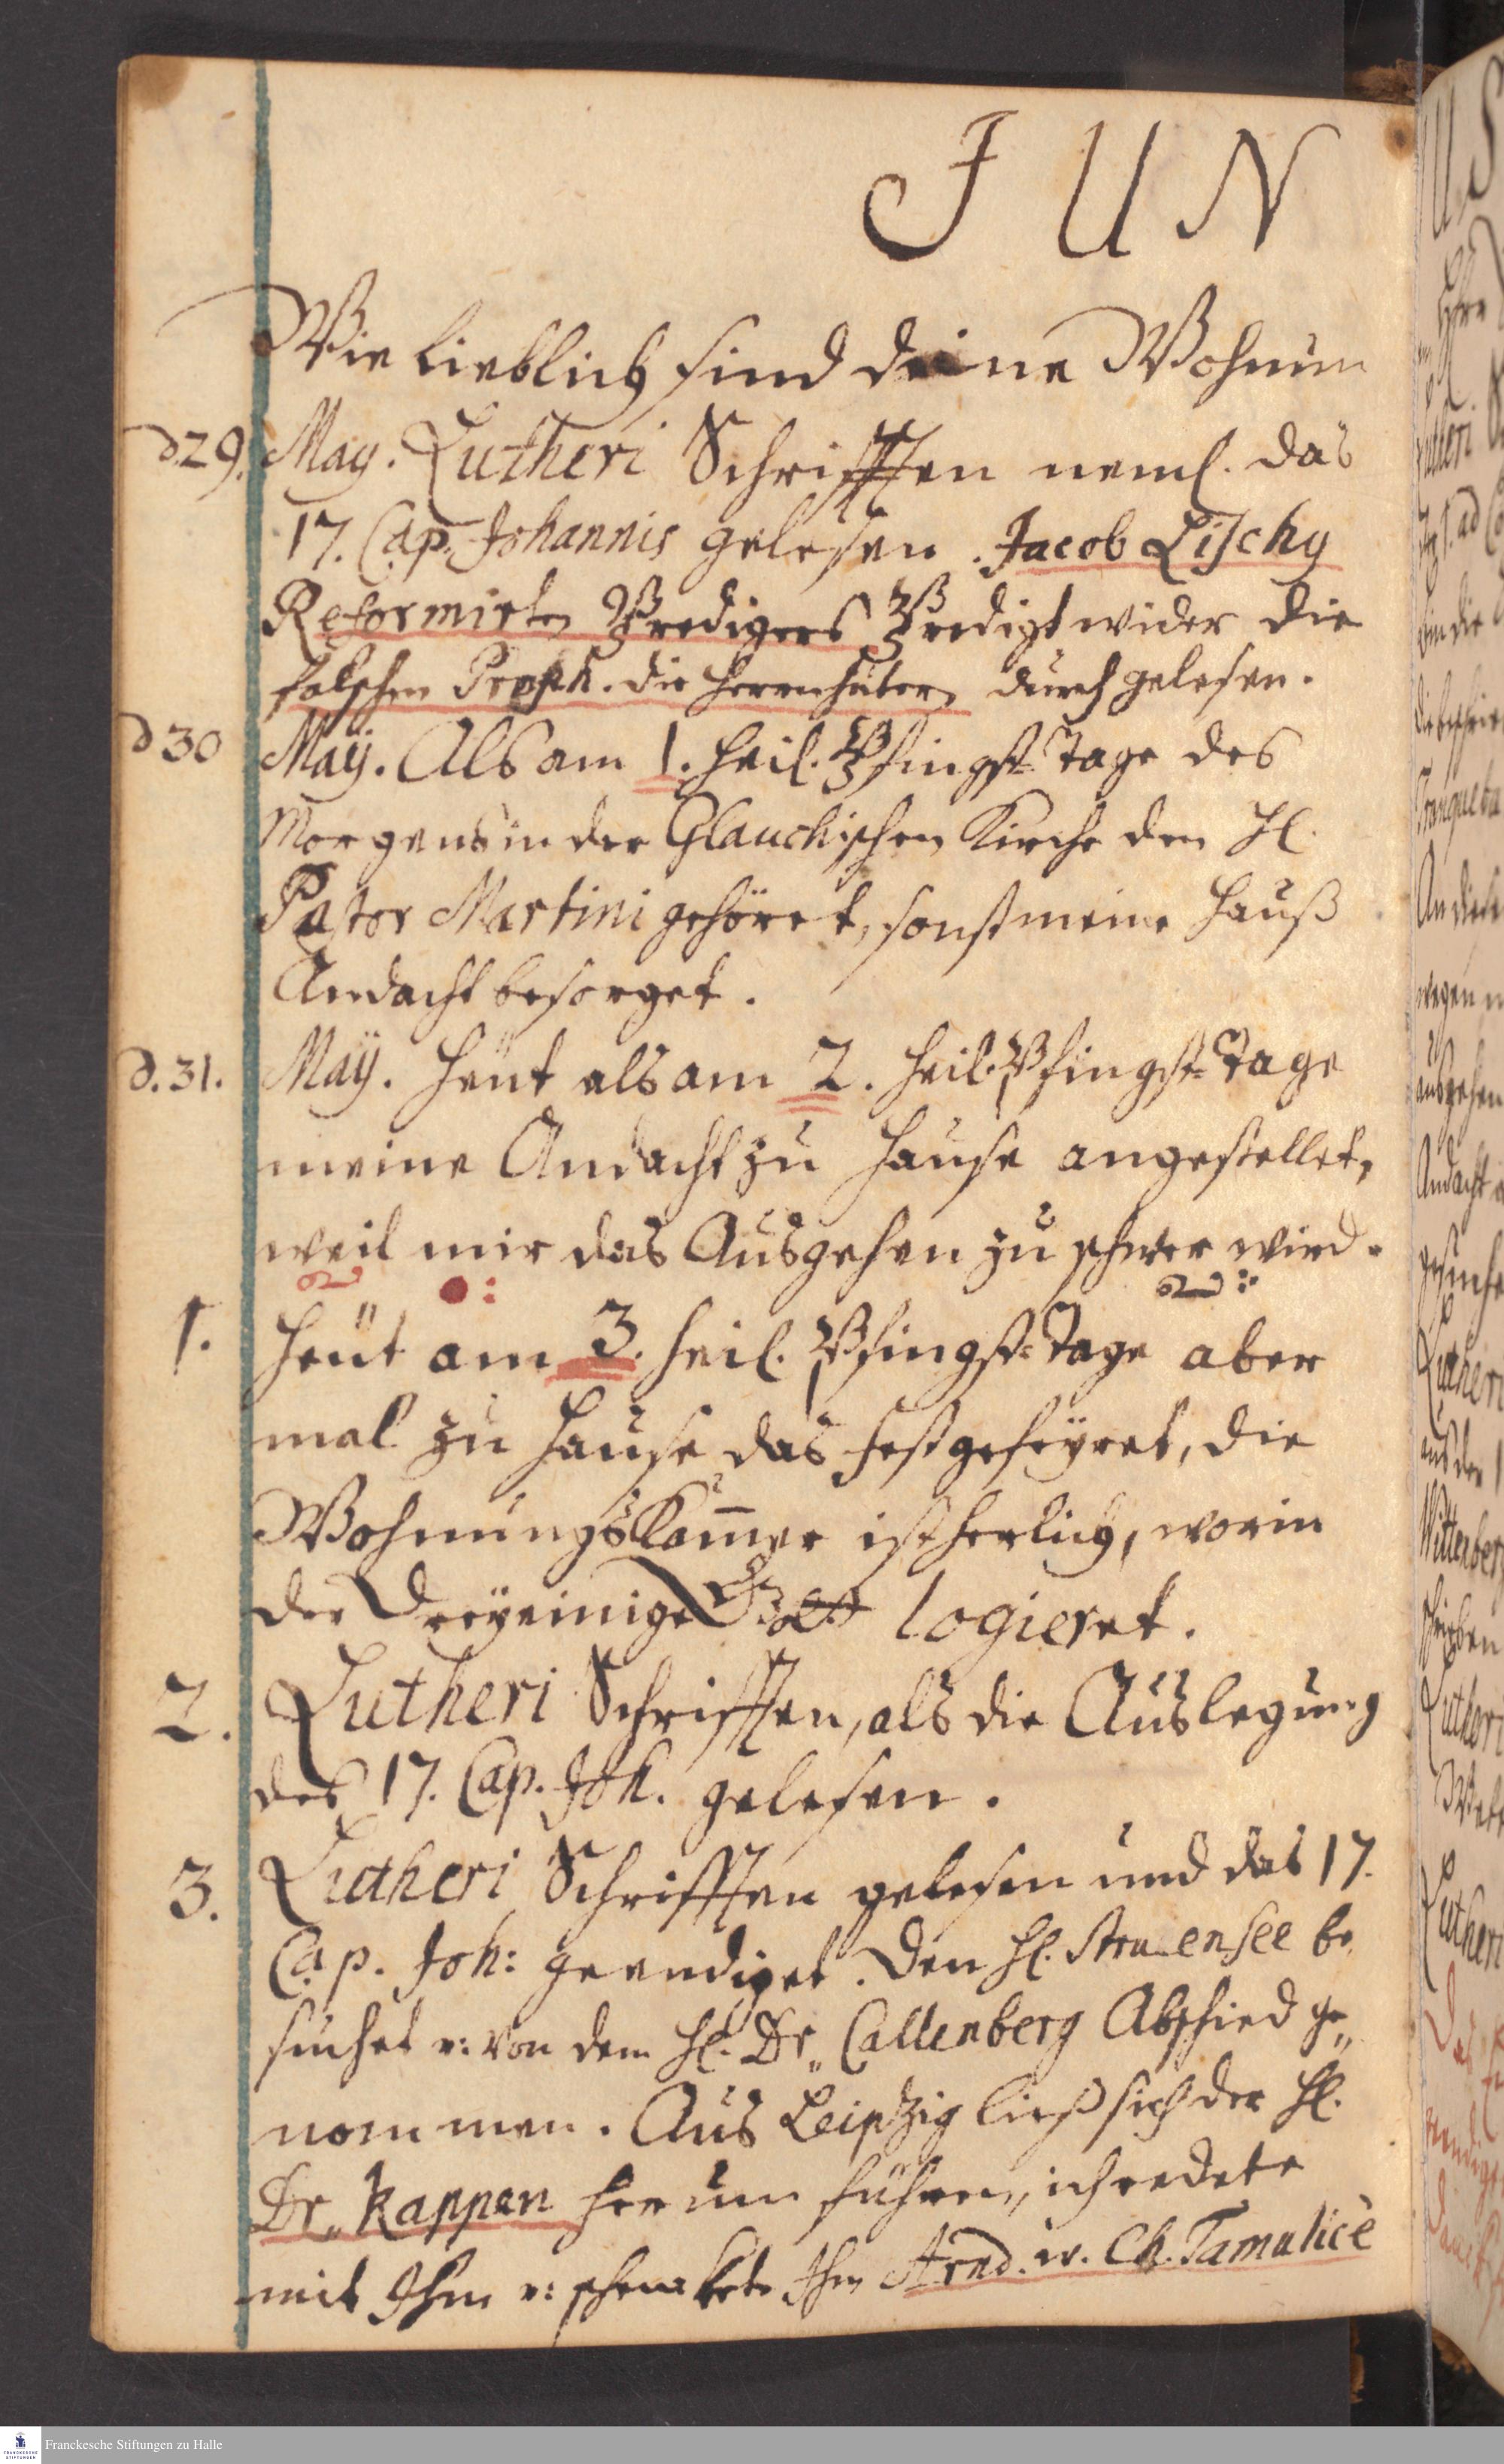 JUN
Wie lieblich sind deine Wohnun
d. 29. May. Lutheri Schrifften neml. das
17. Cap. Johannis gelesen. Jacob Lischy
Reformirten Predigers Predigt wider die
falschen Proph. die Herrnhuter durchgelesen.
d 30 Maÿ. Als am 1. heil. Pfingst-Tage des
Morgens in der Glauchischen Kirche den H.
Pastor Martini gehöret, sonst meine Hauß
Andacht besorget.
d. 31. Maÿ. Heut als am 2. heil. Pfingst-Tage
meine Andacht zu Hause angestellet,
weil mir das Ausgehen zu schwer wird.
1. Heut am 3. heil. Pfingst-Tage aber
mal zu Hause das Fest gefeyret, die
Wohnungs Kam̄er ist herlich, worin
der Dreyeinige Gott logieret.
2. Lutheri Schrifften, als die Auslegung
des 17. Cap. Joh. gelesen.
3. Lutheri Schrifften gelesen und das 17.
Cap. Joh: geendiget. Den H. Struensee be
suchet u: von dem H. Dr. Callenberg Abschied ge„
nommen. Aus Leipzig ließ sich der H.
Dr. Kappen herum führen, ich redete
mit Ihm u: schenkete Ihm Arnd. w. Ch. Tamulicè
Franckesche Stiftungen zu Halle